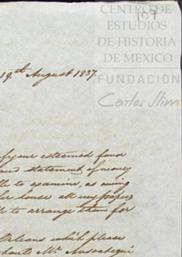 CENTRO DE
ESTUDIOS
DE HISTORIA
DE MEXICO
FUNDACIÓN
Carlos Slim
19.th August 1837.
your esteemed favor
and statement of money
to examine, as using
house all my papers
to arrange them for
Orleans which please
Mr.